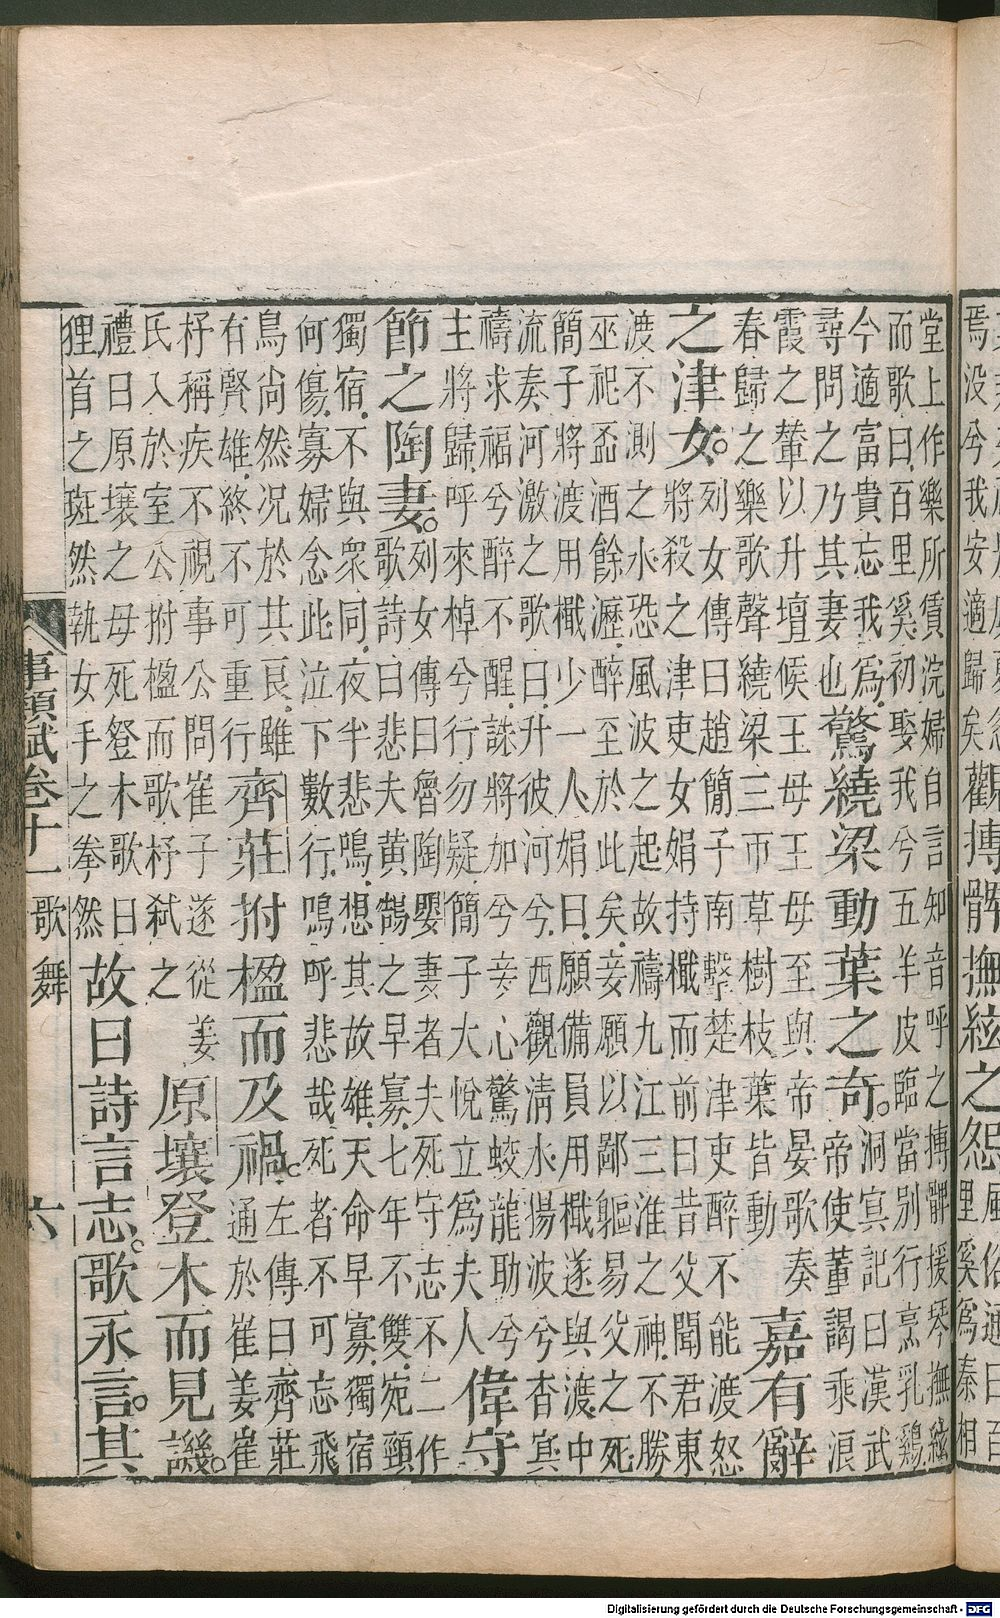 焉没兮我安適歸矣觀搏髀撫絃之怨風俗通曰百
里奚爲秦相
堂上作樂所賃浣婦自言知音呼之搏髀援琴撫絃
而歌曰百里奚初娶我兮五羊皮臨當別行烹乳鷄
今適富貴忘我爲
尋問之乃其妻也
驚繞梁動葉之奇。
洞冥記曰漢武
帝使董謁乘浪
霞之輦以升壇候王母王母至與帝晏歌奏
春歸之樂歌聲繞梁三帀草樹枝葉皆動
嘉有辭
之津女。
列女傳曰趙簡子南擊楚津吏醉不能渡怒
將殺之津吏女娟持檝而前曰昔父聞君東
渡不測之水恐風波之起故禱九江三淮之神不勝
巫祀盃酒餘瀝醉至於此矣妾願以鄙軀易父之死
簡子將渡用檝少一人娟曰願備員用檝遂與渡中
流奏河激之歌曰升彼河兮西觀清水揚波兮杳冥
禱求福兮醉不醒誅將加兮妾心驚蛟龍助兮
主將歸呼來棹兮行勿疑簡子大悅立爲夫人
偉守
節之陶妻。
列女傳曰魯陶嬰妻者夫死守志不二作
歌詩曰悲夫黃鵠之早寡七年不雙宛頸
獨宿不與衆同夜半悲鳴想其故雄天命早寡獨宿
何傷寡婦念此泣下數行嗚呼悲哉死者不可忘飛
鳥尚然况於其良雖
有賢雄終不可重行
齊莊拊楹而及禍。
左傳曰齊莊
通於崔姜崔
杼稱疾不視事公問崔子遂從姜
氏入於室公拊楹而歌杼弒之
原壤登木而見譏。
禮曰原壤之母死登木歌曰
狸首之斑然執女手之拳然
故曰詩言志。歌永言。其
事類賦卷十一 歌舞 六
Digitalisierung gefördert durch die Deutsche Forschungsgemeinschaft - DFG